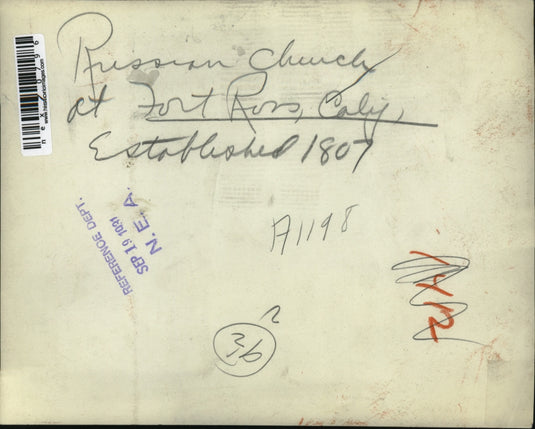 Russian Church
at Fort Ross, Calif.,
Established 1807
REFERENCE DEPT.
SEP 19 1931
N. E. A.
A1198
1412
36
2
www.historicimages.com